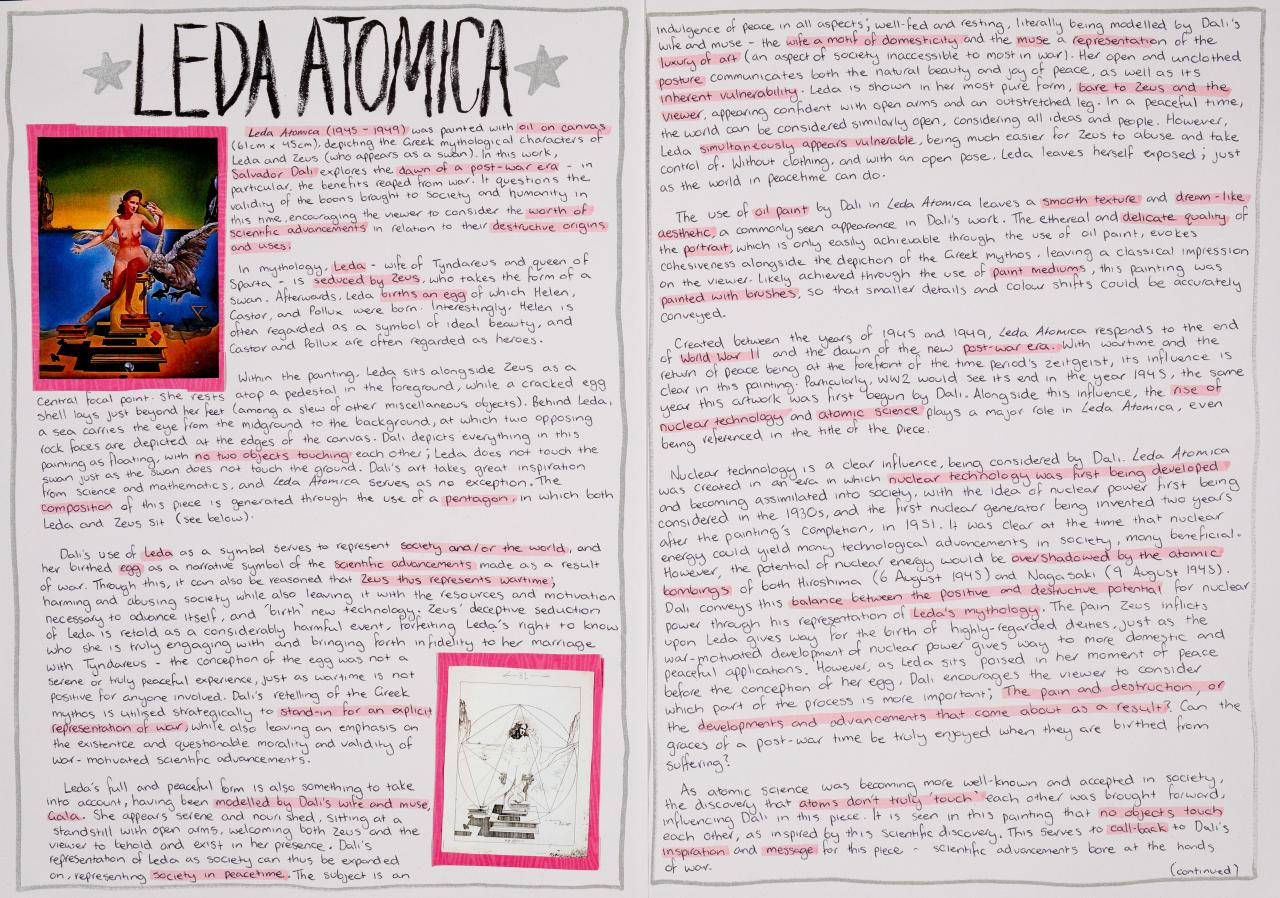 LEDA ATOMICA
Leda Atomica (1945-1949) was painted with oil on canvas
(61cm x 45cm), depicting the Greek mythological characters of
Leda and Zeus (who appears as a swan). In this work,
Salvador Dali explores the dawn of a post-war era - in
particular, the benefits reaped from war. It questions the
validity of the boons brought to society and humanity in
this time, encouraging the viewer to consider the worth of
scientific advancements in relation to their destructive origins
and uses.
In mythology, Leda - wife of Tyndareus and queen of
Sparta - is seduced by Zeus, who takes the form of a
swan. Afterwards, Leda births an egg of which Helen,
Castor, and Pollux were born. Interestingly, Helen is
often regarded as a symbol of ideal beauty, and
Castor and Pollux are often regarded as heroes.
Within the painting, Leda sits alongside Zeus as a
central focal point. She rests atop a pedestal in the foreground, while a cracked egg
shell lays just beyond her feet (among a slew of other miscellaneous objects). Behind Leda,
a sea carries the eye from the midground to the background, at which two opposing
rock faces are depicted at the edges of the canvas. Dali depicts everything in this
painting as floating, with no two objects touching each other; Leda does not touch the
swan just as the swan does not touch the ground. Dali's art takes great inspiration
from science and mathematics, and Leda Atomica serves as no exception. The
composition of this piece is generated through the use of a pentagon, in which both
Leda and Zeus sit (see below).
Dali's use of Leda as a symbol serves to represent society and/or the world, and
her birthed egg as a narrative symbol of the scientific advancements made as a result
of war. Through this, it can also be reasoned that Zeus thus represents wartime;
harming and abusing society while also leaving it with the resources and motivation
necessary to advance itself, and 'birth' new technology. Zeus' deceptive seduction
of Leda is retold as a considerably harmful event, forfeiting Leda's right to know
who she is truly engaging with and bringing forth infidelity to her marriage
with Tyndareus - the conception of the egg was not a
serene or truly peaceful experience, just as wartime is not
positive for anyone involved. Dali's retelling of the Greek
mythos is utilised strategically to stand-in for an explicit
representation of war, while also leaving an emphasis on
the existence and questionable morality and validity of
war-motivated scientific advancements.
Leda's full and peaceful form is also something to take
into account, having been modelled by Dali's wife and muse,
Gala. She appears serene and nourished, sitting at a
standstill with open arms, welcoming both Zeus and the
viewer to behold and exist in her presence. Dali's
representation of Leda as society can thus be expanded
on, representing society in peacetime. The subject is an
indulgence of peace in all aspects; well-fed and resting, literally being modelled by Dali's
wife and muse - the wife a motif of domesticity and the muse a representation of the
luxury of art (an aspect of society inaccessible to most in war). Her open and unclothed
posture communicates both the natural beauty and joy of peace, as well as its
inherent vulnerability. Leda is shown in her most pure form, bare to Zeus and the
viewer, appearing confident with open arms and an outstretched leg. In a peaceful time,
the world can be considered similarly open, considering all ideas and people. However,
Leda simultaneously appears vulnerable, being much easier for Zeus to abuse and take
control of. Without clothing, and with an open pose, Leda leaves herself exposed; just
as the world in peacetime can do.
The use of oil paint by Dali in Leda Atomica leaves a smooth texture and dream-like
aesthetic, a commonly seen appearance in Dali's work. The ethereal and delicate quality of
the portrait, which is only easily achievable through the use of oil paint, evokes
cohesiveness alongside the depiction of the Greek mythos, leaving a classical impression
on the viewer. Likely achieved through the use of paint mediums, this painting was
painted with brushes, so that smaller details and colour shifts could be accurately
conveyed.
Created between the years of 1945 and 1949, Leda Atomica responds to the end
of World War II and the dawn of the new post-war era. With wartime and the
return of peace being at the forefront of the time period's zeitgeist, its influence is
clear in this painting. Particularly, WW2 would see its end in the year 1945, the same
year this artwork was first begun by Dali. Alongside this influence, the rise of
nuclear technology and atomic science plays a major role in Leda Atomica, even
being referenced in the title of the piece.
Nuclear technology is a clear influence, being considered by Dali. Leda Atomica
was created in an era in which nuclear technology was first being developed
and becoming assimilated into society, with the idea of nuclear power first being
considered in the 1930s, and the first nuclear generator being invented two years
after the painting's completion, in 1951. It was clear at the time that nuclear
energy could yield many technological advancements in society, many beneficial.
However, the potential of nuclear energy would be overshadowed by the atomic
bombings of both Hiroshima (6 August 1945) and Nagasaki (9 August 1945).
Dali conveys this balance between the positive and destructive potential for nuclear
power through his representation of Leda's mythology. The pain Zeus inflicts
upon Leda gives way for the birth of highly-regarded deities, just as the
war-motivated development of nuclear power gives way to more domestic and
peaceful applications. However, as Leda sits poised in her moment of peace
before the conception of her egg, Dali encourages the viewer to consider
which part of the process is more important; The pain and destruction, or
the developments and advancements that come about as a result? Can the
graces of a post-war time be truly enjoyed when they are birthed from
suffering?
As atomic science was becoming more well-known and accepted in society,
the discovery that atoms don't truly 'touch' each other was brought forward,
influencing Dali in this piece. It is seen in this painting that no objects touch
each other, as inspired by this scientific discovery. This serves to call-back to Dali's
inspiration and message for this piece - scientific advancements bore at the hands
of war.
(continued)